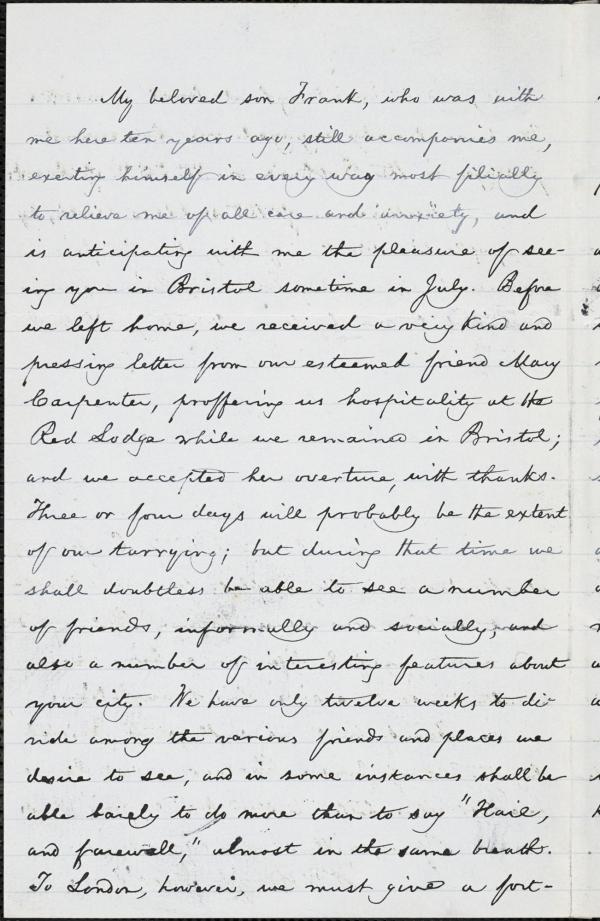 My beloved son Frank, who was with
me here ten years ago, still accompanies me,
exerting himself in every way most filially
to relieve me of all care and anxiety, and
is anticipating with me the pleasure of see-
ing you in Bristol sometime in July. Before
we left home, we received a very kind and
pressing letter from our esteemed friend Mary
Carpenter, proffering us hospitality at the
Red Lodge while we remained in Bristol;
and we accepted her overture, with thanks.
Three or four days will probably be the extent
of our tarrying; but during that time we
shall doubtless be able to see a number
of friends, informally and socially, and
also a number of interesting features about
your city. We have only twelve weeks to di-
vide among the various friends and places we
desire to see, and in some instances shall be
able barely to do more than to say "Hail,
and farewell," almost in the same breath.
To London, however, we must give a fort-